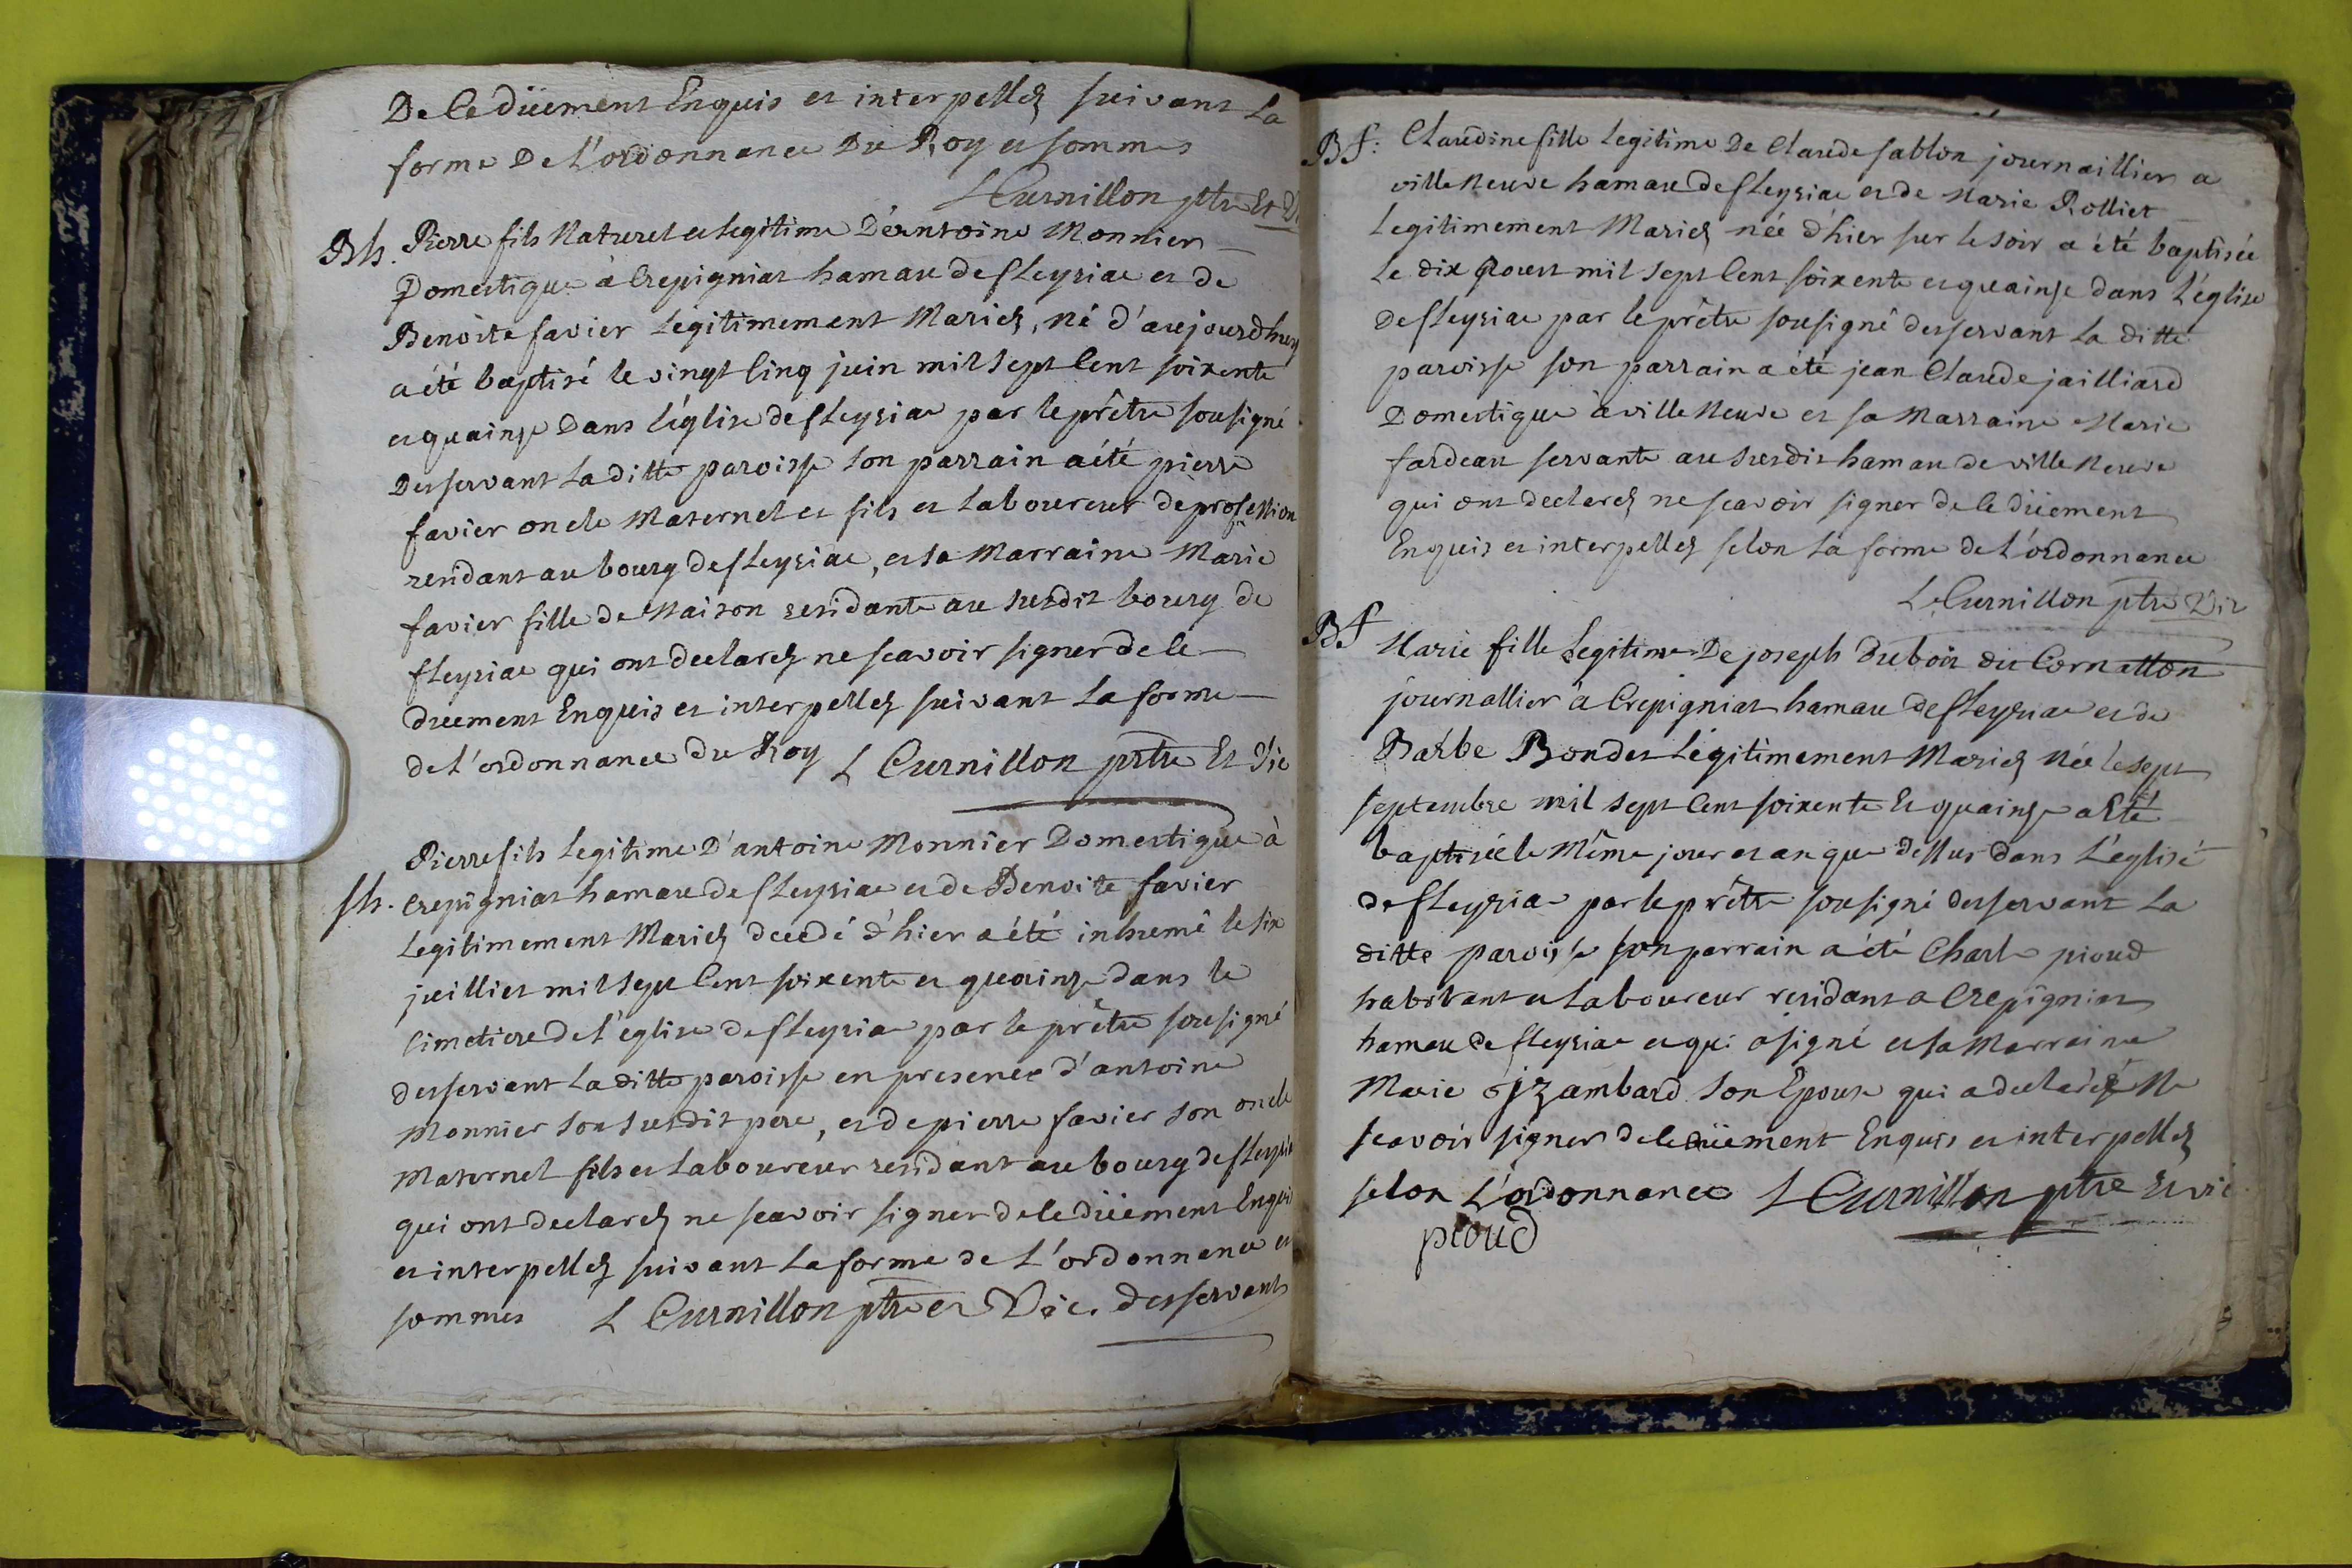 De Ce düement Enquis et interpellez suivant la
forme De L'ordonnance Du Roy et sommes
L Curnillon ptre Et Vi
Bh. Pierre fils Naturel et legitime D'antoine Monnier
Domestique à Crepigniat hamau de fleyriac et de
Benoite favier Legitimement Mariez, né d'aujourdhuy
a été baptisé le vingt Cinq juin mil sept Cent soixente
et quainze Dans L'église de fleyriac par le prêtre sousigné
Desservant La ditte paroisse son parrain a été pierre
favier oncle Maternel et fils et Laboureur de profession
residant au bourg de fleyriac, et sa Marraine Marie
favier fille de Maison residante au susdit bourg de
fleyriac qui ont declarez ne scavoir signer de ce
düement Enquis et interpellez suivant La forme
de L'ordonnance du Roy L Curnillon prtre Et Vic
Pierre fils Legitime D'antoine Monnier Domestique à
sh. Crepigniat hamau de fleyriac et de Benoite favier
Legitimement Mariez decedé d'hier a été inhumé le six
juilliet mil sept Cent soixente et quainze dans le
Cimetiere de L'église de fleyriac par le prêtre sousigné
desservant La ditte paroisse en presence d'antoine
Monnier son susdit pere, et de pierre favier son oncle
Maternel fils et Laboureur residant au bourg de fleyria
qui ont declarez ne scavoir signer de ce düement Enquis
et interpellez suivant La forme de L'ordonnance et
sommes L Curnillon ptre et Vic. desservant
Bf: Claudine fille Legitime De Claude sablon journaillier a
ville Neuve hamau de fleyriac et de Marie Rolliet
Legitimement Mariez née d'hier sur le soir a été baptisée
Le dix aoust mil sept Cent soixente et quainze dans L'église
De fleyriac par le prêtre sousigné desservant La ditte
paroisse son parrain a été jean Claude jailliard
Domestique à ville Neuve et sa Marraine Marie
fardeau servante au susdit hamau de ville Neuve
qui ont declarez ne scavoir signer de Ce düement
Enquis et interpellez selon La forme de L'ordonnance
L Curnillon ptre Vic
Bf Marie fille Legitime De joseph Dubois dit Cornatton
journallier à Crepigniat hamau de fleyriac et de
Barbe Bondet Légitimement Mariez Née le sept
septembre mil sept Cent soixente Et quainze a Eté
baptisée le Même jour et an que dessus dans L'eglise
de fleyria par le prêtre sousigné desservant La
ditte paroisse son parrain a été Charle pioud
habitant et Laboureur residant a Crepigniat
hamau de fleyriac et qui a signé et sa Marraine
Marie ojzambard son Epouse qui a declarée Ne
scavoir signer de ce düement Enquis et interpellez
selon L'ordonnance L Curnillon ptre Et vic
pioud